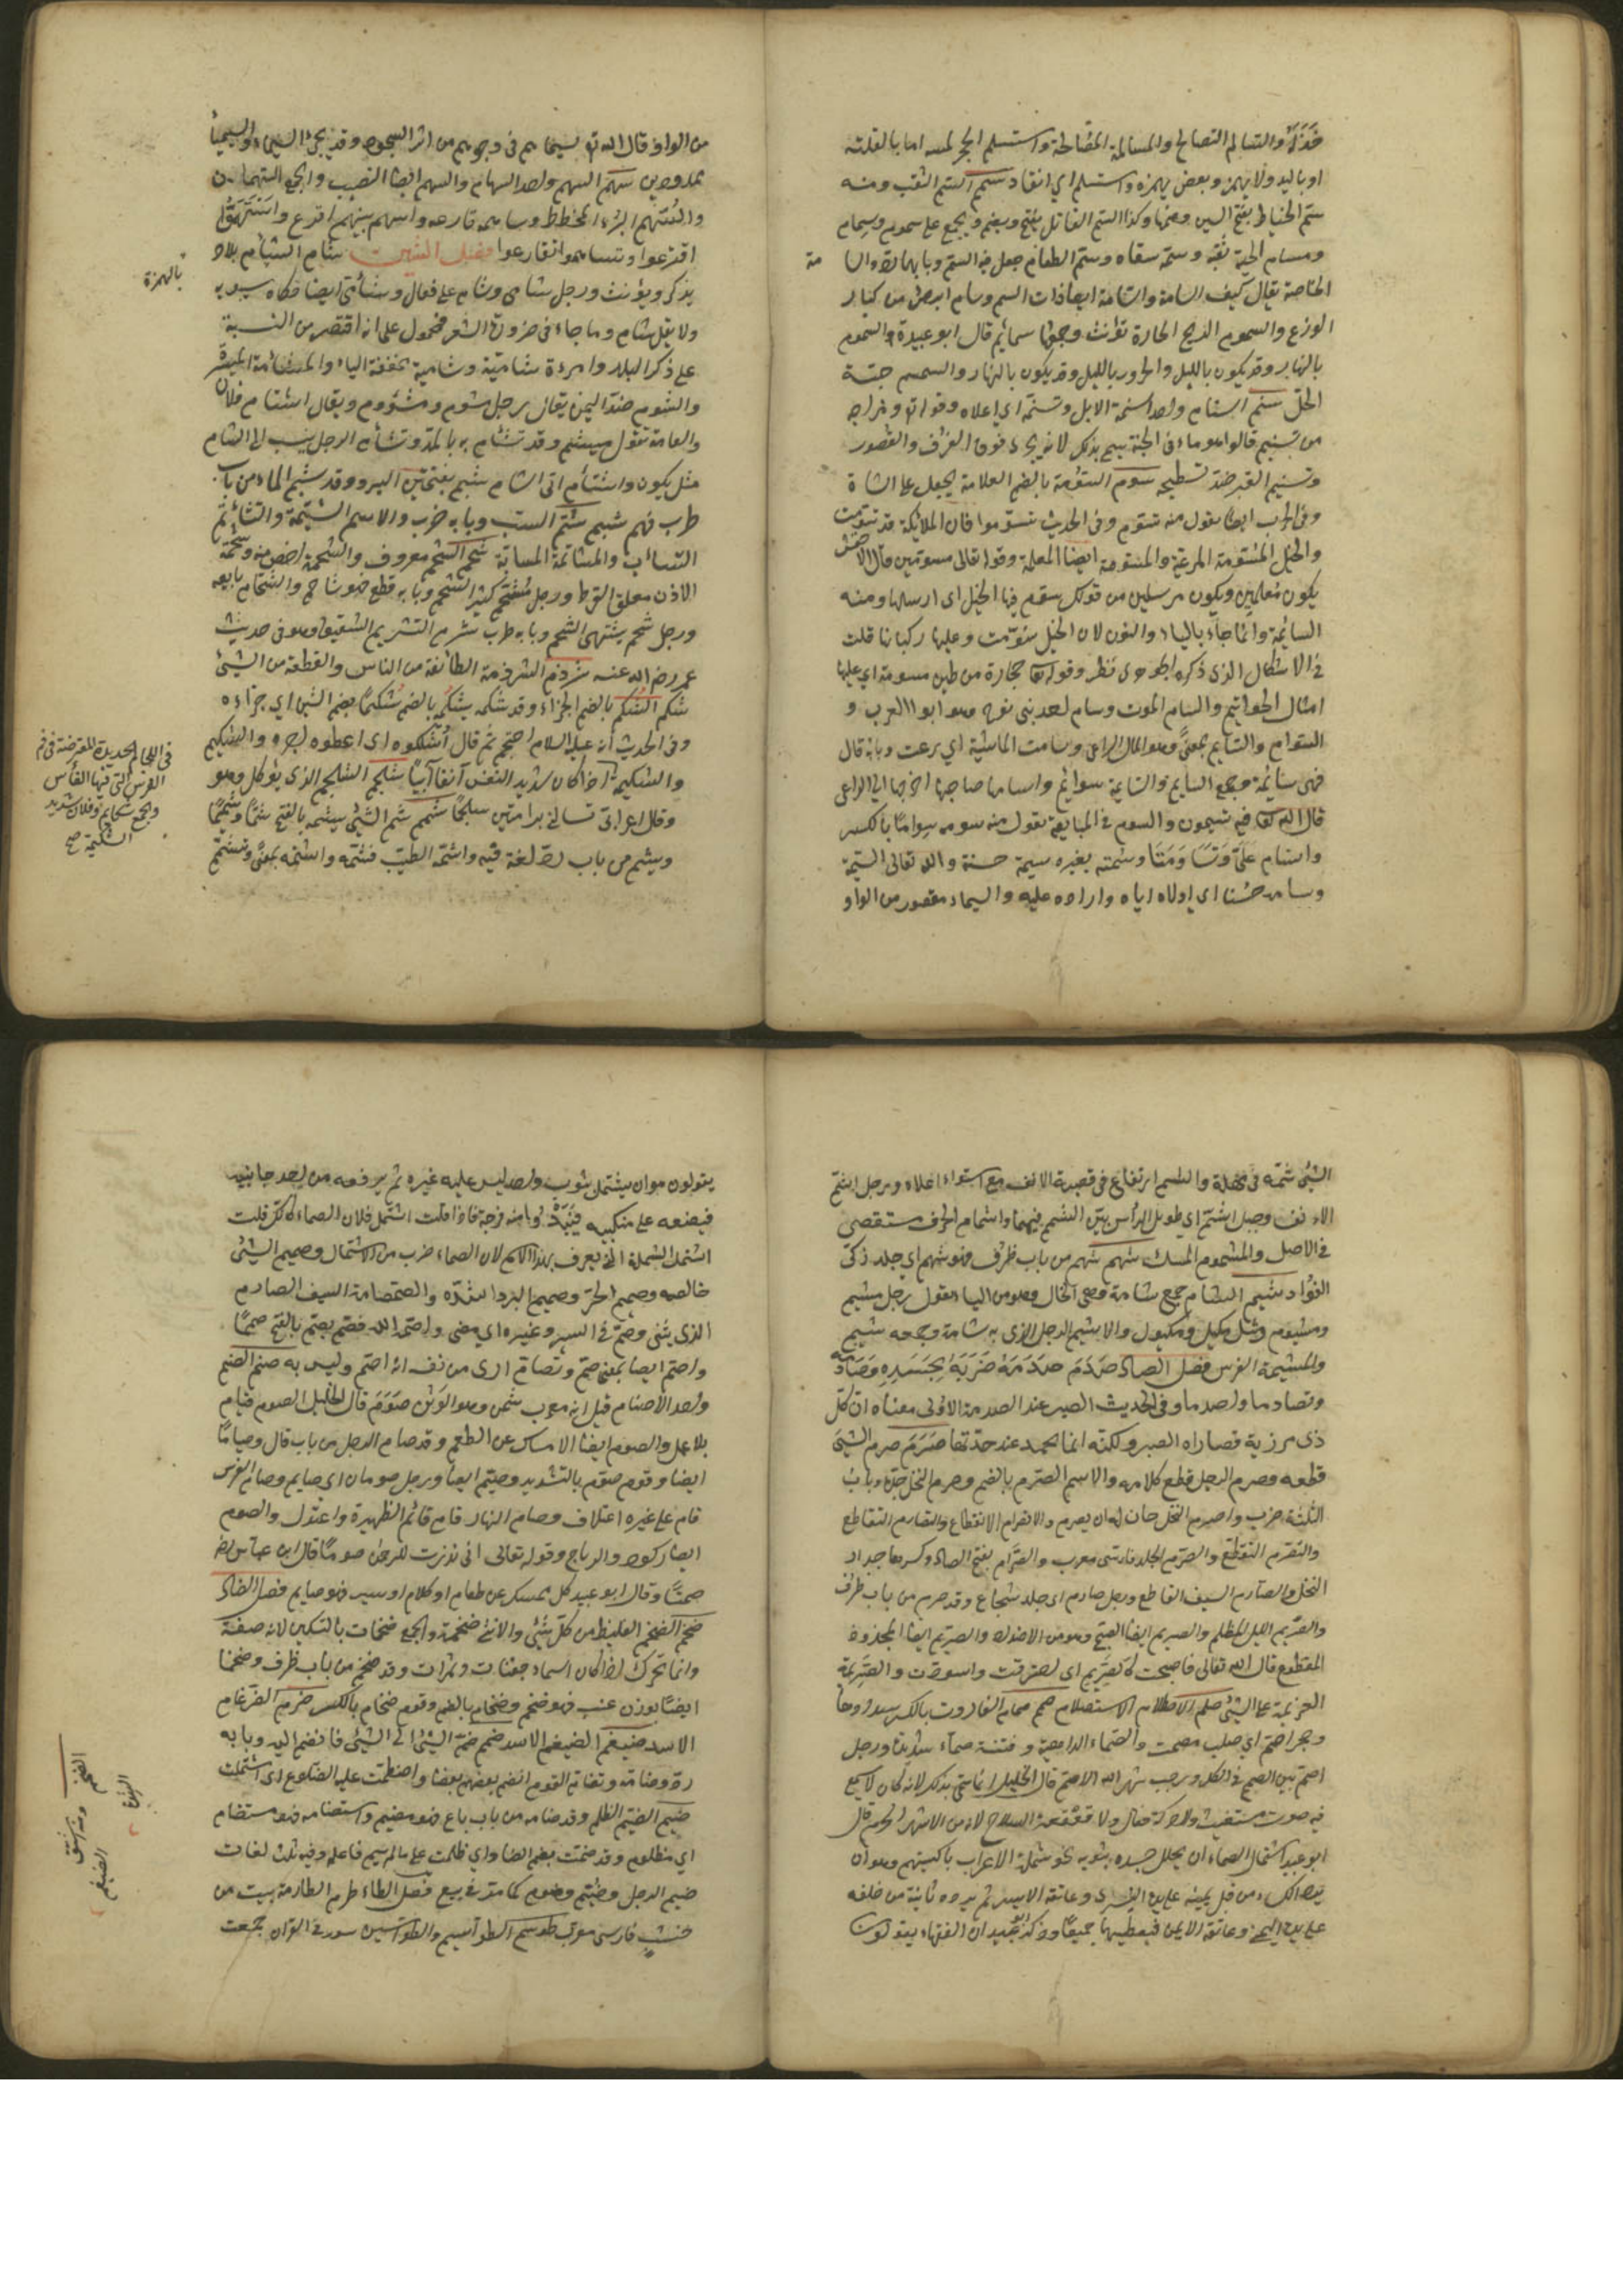 والتسالم التصالح والمسالمة المصالحة واستلم الحجر لمسه اما بالقبلة
او باليد ولا يهمز وبعضهم يهمزه واستسلم اي انقاد سمم السم الثقب ومنه
سم الخياط بفتح السين وضمها وكذا السم القاتل يفتح ويضم ويجمع على سموم وسمام
ومسام الجسد ثقبه وسمه سقاه وسم الطعام جعل فيه السم وبابهما رد والسا مة
الخاصة يقال كيف السامة والعامة والسامة ايضا ذات السم وسام ابرص من كبار
الوزغ والسموم الريح الحارة تؤنث وجمعها سمائم قال ابو عبيدة السموم
بالنهار وقد يكون بالليل والحرور بالليل وقد يكون بالنهار والسمسم حبة
الحل سنم السنام واحد اسنمة الابل وتسنمه اي اعلاه وقوله تع ومزاجه
من تسنيم قالوا هو ماء في الجنة سمي بذلك لانه يجرى فوق الغرف والقصور
وتسنيم القبر ضد تسطيحه سوم السومة بالضم العلامة يجعل على الشاة
وفي الحرب ايضا يقول منه تسوم وفي الحديث تسوموا فان الملائكة قد تسومت
والخيل المسومة المرعية والمسومة ايضا المعلمة وقوله تعالى مسومين قال الاخفش
يكون معلمين ويكون مرسلين من قولك سوم فيها الخيل اى ارسلها ومنه
السائمة وانما جاء بالياء والنون لان الخيل سومت وعليها ركبانها قلت
في الاشكال الذى ذكره الجوهرى نظر وقوله تعا حجارة من طين مسومة اى عليها
امثال الخواتيم والسام الموت وسام احد بنى نوح وهو ابو العرب و
السوام والسايم بمعنى وهو المال الراعى وسامت الماشية اي رعت وبابه قال
فهى سائمة وجمع السايم والسايمة سوايم واسامها صاحبها اخرجها الى الراعى
قال الله تعا فيه تسيمون والسوم في المبايعة يقول منه سومه سواما بالكسر
واستام على وتساوما وسمته بعيره سيمة حسنة والله تعالى السيمة
وسامه خسفا اى اولاه اياه واراده عليه والسيما مقصور من الواو
من الواو قال الله تع سيماهم في وجوههم من اثر السجود وقد يجئ السيماء والسيمياء
ممدودين سهم السهم واحد السهام والسهم ايضا النصيب والجمع السهمان
والمسهم البرد المخطط وساهمه قارعه واسهم بينهم اقرع واستهموا
اقترعوا وتساهموا تقارعوا فصل الشين شام الشام بلاد
بالهمزة
يذكر ويؤنث ورجل شامى وشام على فعال وشأمى ايضا حكاه سيبويه
ولا يقل شام وما جاء في ضرورة الشعر فمحمول على انه اقتصر من النسبة
على ذكر البلد وامرءة شامية وشامية مخففة الياء والمشأمة الميسرة
والشوم ضد اليمن يقال رجل مشوم ومشؤوم ويقال اشتام فلان
والعامة تقول ميشم وقد تشأم به بالمد وتشأم الرجل ينسب الى الشام
مثل يكون واشتأم اتى الشام شبم بفتحتين البرد وقد شبم الماء من باب
طرب فهم شبم شتم السب وبابه ضرب والاسم الشتيمة والتشاتم
التساب والمشاتمة المسابة شحم الشحم معروف والشحمة اخص منه وشحمة
الاذن معلق القرط ورجل مشحم كثير الشحم وبابه قطع فهو شاحم والشحام بايعه
ورجل شحم يشتهى الشحم وبابه طرب شرم التشريم التشقيق وهو في حديث
عمر رضى الله عنه شرذم الشرذمة الطائفة من الناس والقطعة من الشئ
شكم الشكم بالضم الجزاء وقد شكمه يشكمه بالضم شكما بضم الشين اي جزاءه
وفي الحديث انه عليه السلام احتجم ثم قال اشكموه اى اعطوه اجره والشكيم
والشكيمة
في اللجام الحديدة المعترضة في فم
الفرس التى فيها الفأس
والجمع شكايم وفلان شديد
الشكيمة صح
اذا كان شديد النفس آنفا ابيا شلجم الشلجم الذى يؤكل وهو
وقال اعرابى تسالنى برامتين سلجما شمم شم الشئ يشمه بالفتح شما وشميما
ويشم من باب رد لغة فيه واشمه الطيب فشمه واشتمه بمعنى وتشمم
الشئ شمه في مهلة والشمم ارتفاع في قصبة الانف مع استواء اعلاه ورجل اشم
الانف وجبل اشم اي طويل الرأس بين الشمم فيهما واشمام الحرف مستقصى
في الاصل والمشموم المسك شهم شهم من باب ظرف فهو شهم اي جلد ذكى
الفؤاد شيم الشام جمع شامة وهى الخال وهو من الياء تقول رجل مشيم
ومشيوم مثل مكيل ومكيول والاشيم الرجل الذى به شامة وجمعه شيم
والمشيمة الغرس فصل الصاد صدم صدمه ضربه بجسده وصادمه
وتصادما واصدما وفي الحديث الصبر عند الصدمة الاولى معناه ان كل
ذى مرزية قصاراه الصبر ولكنه انما يحمد عند حدتها صرم صرم الشئ
قطعه وصرم الرجل قطع كلامه والاسم الصرم بالضم وصرم النخل جده وباب
الثلثة ضرب واصرم النخل حان له ان يصرم والانصرام الانقطاع والتصارم التقاطع
والتصرم التقطع والصرم الجلد فارسى معرب والصرام بفتح الصاد وكسرها جداد
النخل والصارم السيف القاطع ورجل صارم اى جلد شجاع وقد صرم من باب ظرف
والصريم الليل المظلم والصريم ايضا الصبح وهو من الاضداد والصريم ايضا المجذوذ
المقطوع قال الله تعالى فاصبحت كالصريم اى احترقت واسودت والصريمة
العزيمة على الشئ صلم الاصطلام الاستئصال صمم صمام القارورت بالكسر سدادها
وحجر اصم اي صلب مصمت والصماء الداهية وفتنة صماء شديدة ورجل
اصم بين الصمم في الكل ورجب شهر الله الاصم قال الخليل انما سمى بذلك لانه كان لا يسمع
فيه صوت مستغيث ولا حركة قتال ولا قعقعة السلاح لانه من الاشهر الحرم قال
ابو عبيد اشتمال الصماء ان يجلل جسده بثوبه نحو شملة الاعراب باكسيتهم وهو ان
يرد الكساء من قبل يمينه على يده اليسرى وعاتقه الايسر ثم يرده ثانية من خلفه
على يده اليمنى وعاتقه الايمن فيغطيهما جميعا وذكر ابو عبيد ان الفقهاء يقولون
يقولون هو ان يشتمل بثوب واحد ليس عليه غيره ثم يرفعه من احد جانبيه
فيضعه على منكبيه فيبدو منه فرجة فاذا قلت اشتمل فلان الصماء كانك قلت
اشتمل الشملة التى يعرف بهذا الاسم لان الصماء ضرب من الاشتمال وصميم الشئ
خالصه وصميم الحر وصميم البرد اشده والصمصامة السيف الصارم
الذى ينثنى وصمم في السير وغيره اى مضى واصمه الله فصم يصم بالفتح صمما
واصم ايضا بمعنى صم وتصام ارى من نفسه انه اصم وليس به صنم الصنم
واحد الاصنام قيل انه معرب شمن وهو الوثن صوم قال الخليل الصوم قيام
بلا عمل والصوم ايضا الامساك عن الطعم وقد صام الرجل من باب قال وصياما
ايضا وقوم صوم بالتشديد وصيم ايضا ورجل صومان اى صايم وصام الفرس
قام على غيره اعتلاف وصام النهار قام قائم الظهيرة واعتدل والصوم
ايضا ركود الرياح وقوله تعالى انى نذرت للرحمن صوما قال ابن عباس رض
صمتا وقال ابو عبيد كل ممسك عن طعام او كلام او سير فهو صايم فصل الضاد
ضخم الضخم الغليظ من كل شئ والانثى ضخمة والجمع ضخمات بالتسكين لانه صفة
وانما تحرك اذا كان اسما مثل جفنات وتمرات وقد ضخم من باب ظرف وضخما
ايضا بوزن عنب فهو ضخم وضخام بالضم وقوم ضخام بالكسر ضرم الضرغام
الاسد ضيغم الضيغم الاسد ضمم ضم الشئ الى الشئ فانضم اليه وبابه
رد وضامه وتضام القوم انضم بعضهم بعضا واضطمت عليه الضلوع اى اشتملت
ضيم الضيم الظلم وقد ضامه من باب باع فهو مضيم واستضامه فهو مستضام
اي مظلوم وقد ضمت بضم الضاد اي ظلمت على ما لم يسم فاعله وفيه ثلث لغات
ضيم الرجل وضئم وضوم كما مر في بيع فصل الطاء طرم الطارمة بيت من
خشب فارسى معرب طوسم الطواسيم والطواسين سور في القران جمعت
الضيغم